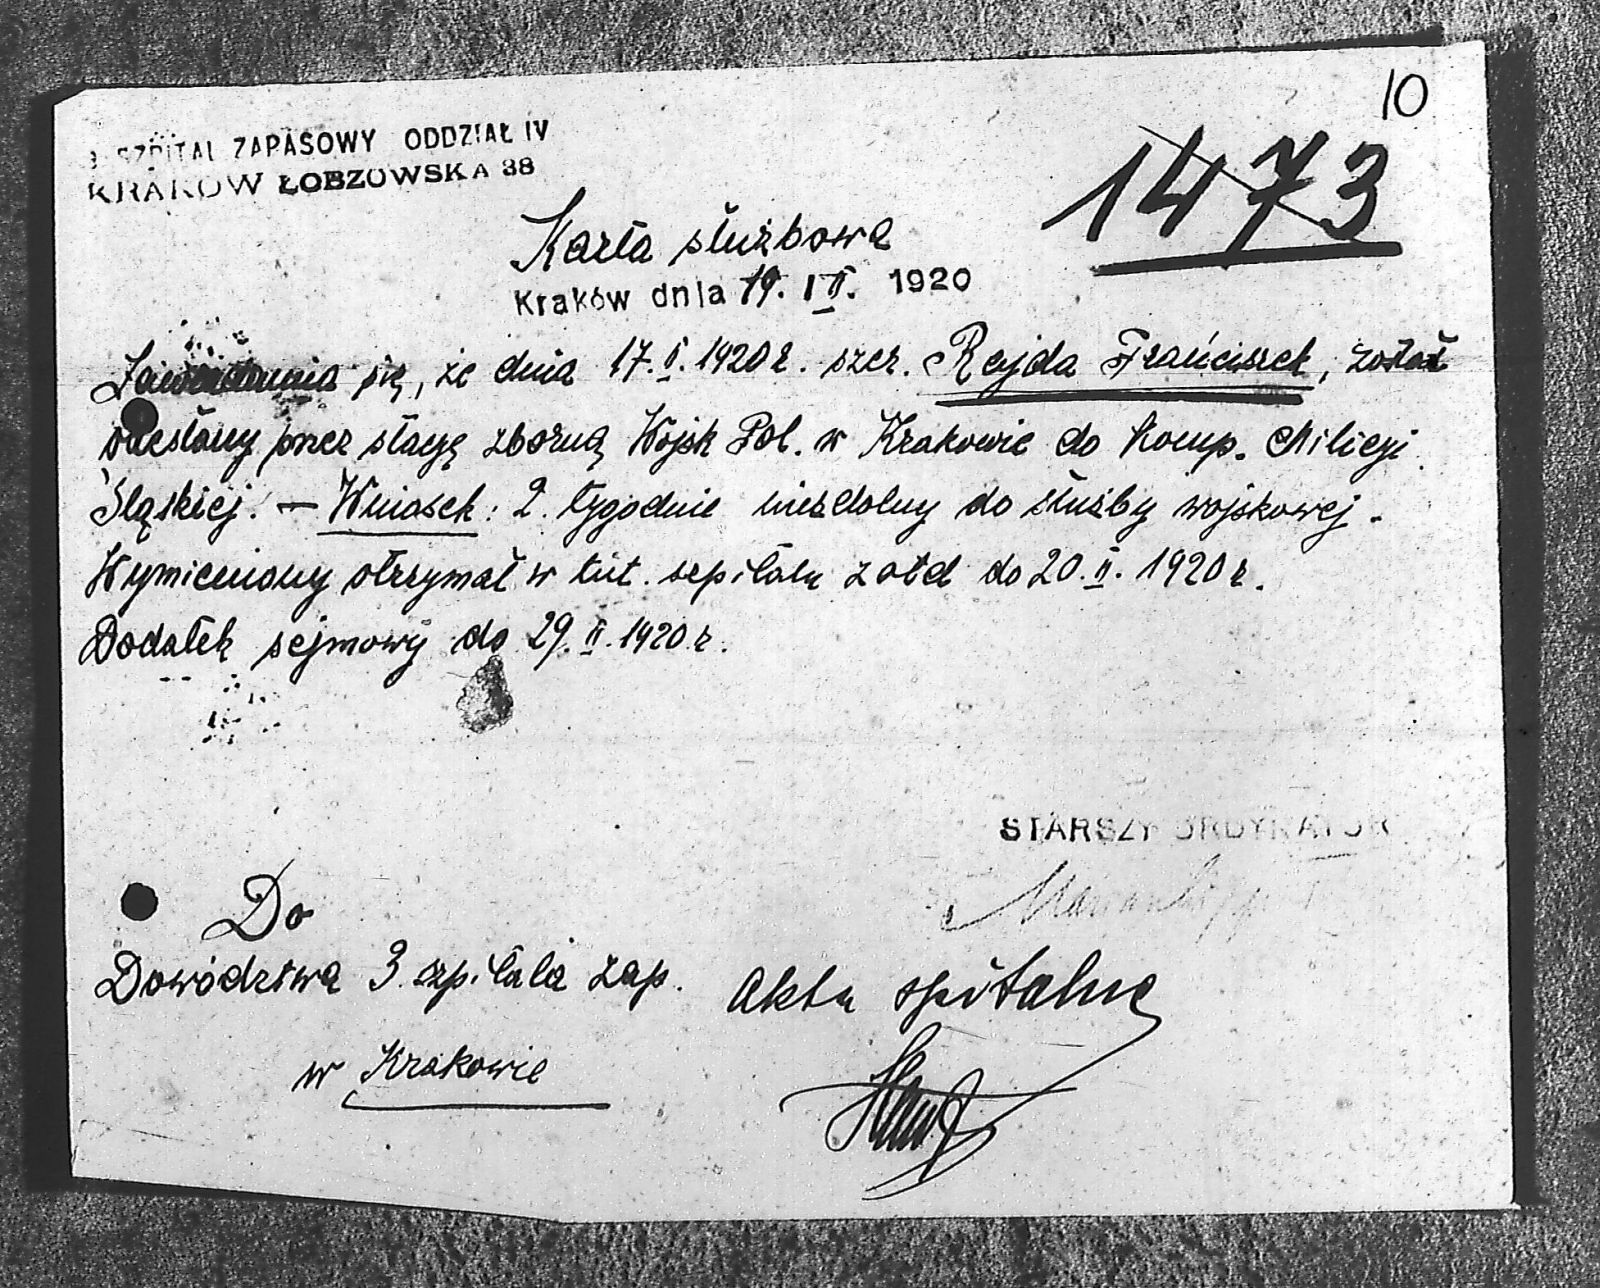 10
SZPITAL ZAPASOWY ODDZIAŁ IV
KRAKÓW ŁOBZOWSKA 38
1473
Karta służbowa
Kraków dnia 19. II. 1920
Zawiadamia się, że dnia 17.II.1920 r. szer. Rejda Frańciszek, został
odesłany przez stację zborną Wojsk Pol. w Krakowie do Komp. Milicyi
Śląskiej. — Wniosek: 2. tygodnie niezdolny do służby wojskowej.
Wymieniony otrzymał w tut. szpitalu żołd do 20.II.1920 r.
Dodatek sejmowy do 29.II.1920.r.
STARSZY ORDYNATOR
Do
Dowództwa 3. szpitala zap.
Akta szpitalne
w Krakowie